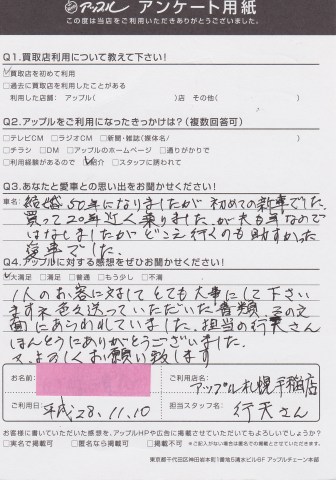 アップル アンケート用紙
この度は当店をご利用いただきありがとうございました。
Q1.買取店利用について教えて下さい!
☑買取店を初めて利用
□過去に買取店を利用したことがある
利用した店舗: アップル( )店 その他( )
Q2.アップルをご利用になったきっかけは?(複数回答可)
□テレビCM □ラジオCM □新聞・雑誌(媒体名/ )
□チラシ □DM □アップルのホームページ □通りがかりで
□利用経験があるので ☑紹介 □スタッフに誘われて
Q3.あなたと愛車との思い出をお聞かせください!
車名:
結婚50年になりましたが 初めての新車でした.
買って20年近く乗りました.が夫も年なので
はなしましたがどこえ行くのも助すかった
愛車でした.
Q4.アップルに対する感想をぜひお聞かせください!
☑大満足 □満足 □普通 □もう少し □不満
1人のお客に対してとても大事にして下さい
ますネ色々送っていただいた書類、その文
面にあらわれていました.担当の行天さん
ほんとうにありがとうございました.
又、よろしくお願い致します
お名前:
ご利用店名:
アップル札幌手稲店
ご利用日:
平成28.11.10
担当スタッフ名:
行天さん
お客様に書いていただいた感想を、アップルHPや広告に掲載させていただいてもよろしいでしょうか?
□実名で掲載可 □匿名なら掲載可 □掲載不可
※ご記入がない場合は匿名での掲載とさせていただきます。
東京都千代田区神田岩本町1番地5清水ビル8F アップルチェーン本部